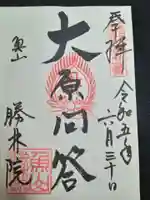 奉拝
令和五年
六月三十日
大原問答
魚山
勝林院